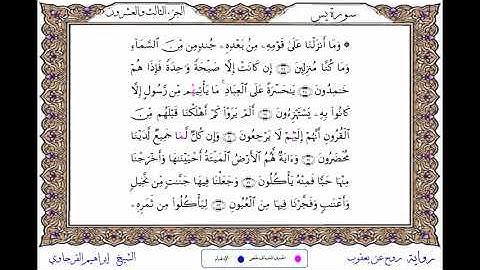 سورة يس
الجزء الثالث والعشرون
۞ وَمَا أَنزَلْنَا عَلَىٰ قَوْمِهِۦ مِنۢ بَعْدِهِۦ مِن جُندٍ مِّنَ ٱلسَّمَآءِ
وَمَا كُنَّا مُنزِلِينَ ۝ إِن كَانَتْ إِلَّا صَيْحَةً وَٰحِدَةً فَإِذَا هُمْ
خَٰمِدُونَ ۝ يَٰحَسْرَةً عَلَى ٱلْعِبَادِ مَا يَأْتِيهُم مِّن رَّسُولٍ إِلَّا
كَانُوا۟ بِهِۦ يَسْتَهْزِءُونَ ۝ أَلَمْ يَرَوْا۟ كَمْ أَهْلَكْنَا قَبْلَهُم مِّنَ
ٱلْقُرُونِ أَنَّهُمْ إِلَيْهِمْ لَا يَرْجِعُونَ ۝ وَإِن كُلٌّ لَمَا جَمِيعٌ لَّدَيْنَا
مُحْضَرُونَ ۝ وَءَايَةٌ لَّهُمُ ٱلْأَرْضُ ٱلْمَيْتَةُ أَحْيَيْنَٰهَا وَأَخْرَجْنَا
مِنْهَا حَبًّا فَمِنْهُ يَأْكُلُونَ ۝ وَجَعَلْنَا فِيهَا جَنَّٰتٍ مِّن نَّخِيلٍ
وَأَعْنَٰبٍ وَفَجَّرْنَا فِيهَا مِنَ ٱلْعُيُونِ ۝ لِيَأْكُلُوا۟ مِن ثَمَرِهِۦ
رواية روح عن يعقوب
الإدغام
الشيخ إبراهيم الفرجاوي